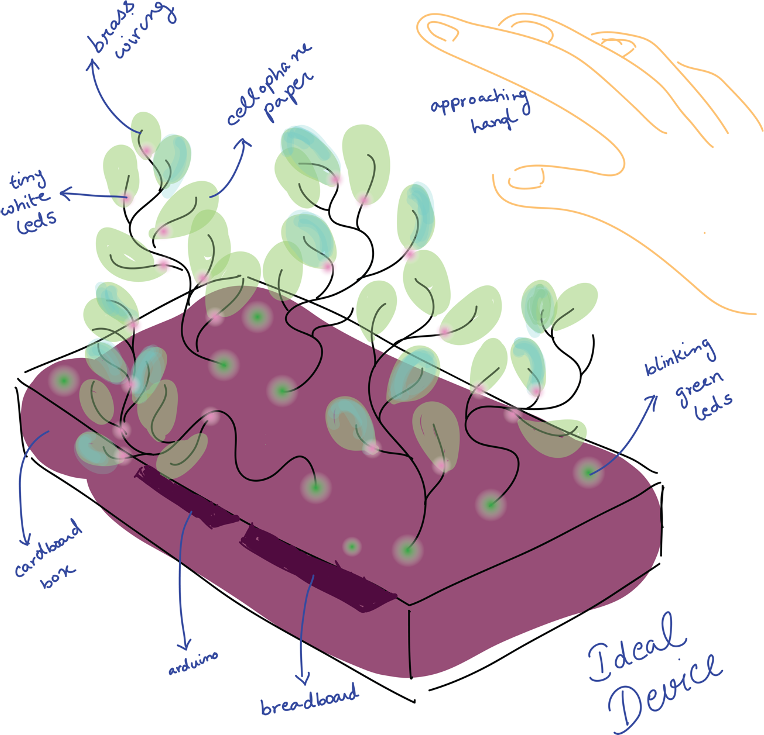 brass
wiring
cellophane
paper
approaching
hand
tiny
white
leds
blinking
green
leds
cardboard
box
arduino
breadboard
Ideal
Device